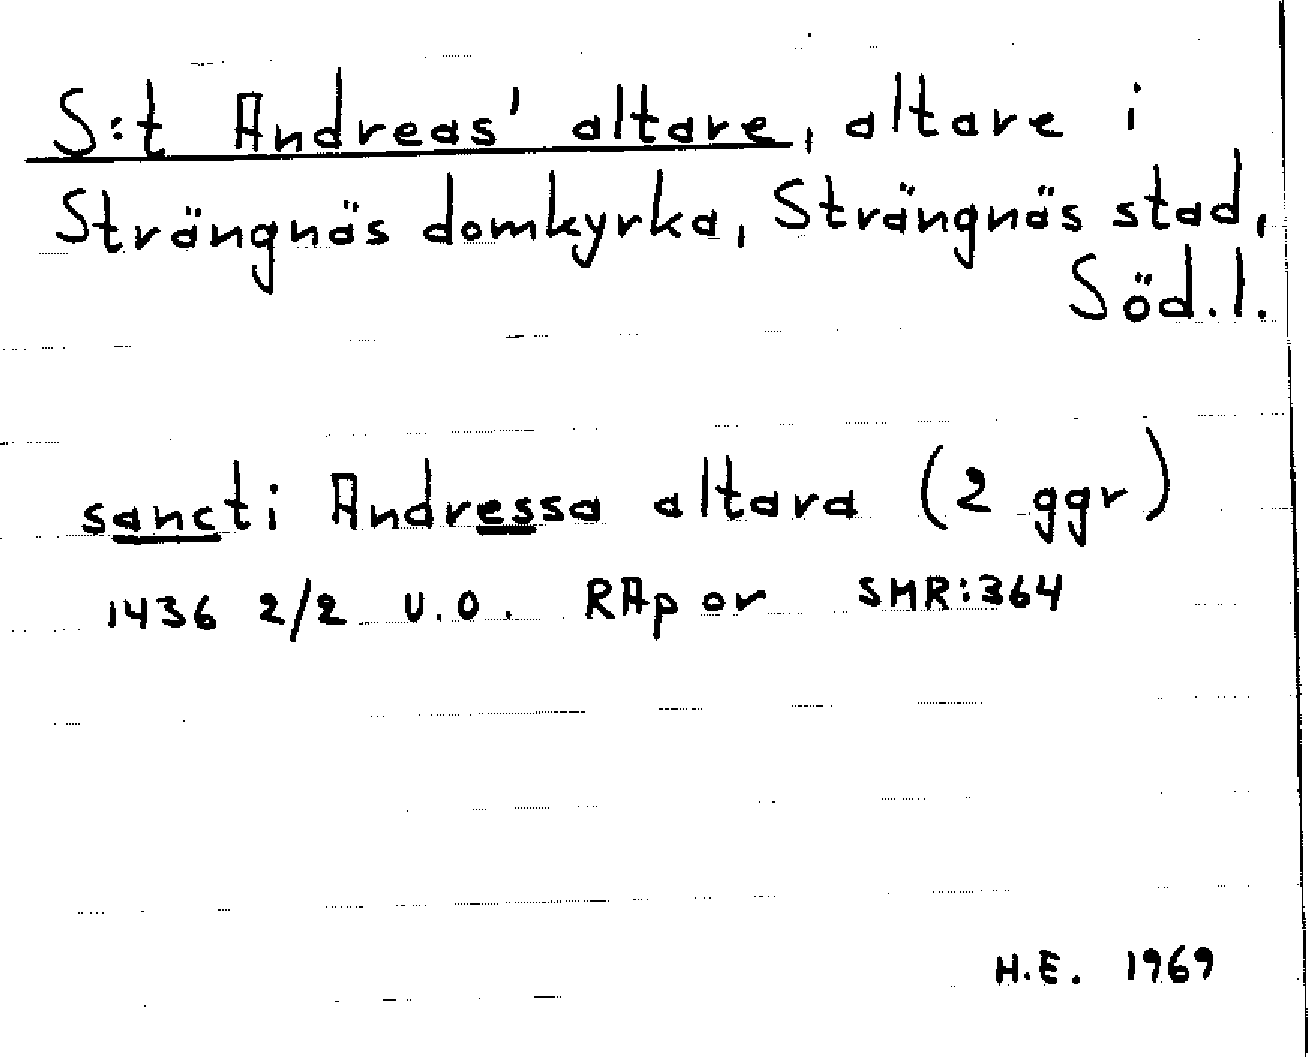 S:t Andreas' altare, altare i
Strängnäs domkyrka, Strängnäs stad,
Söd.l.
sancti Andressa altara (2 ggr)
1436 2/2 U.O. RAp or SMR:364
H.E. 1969